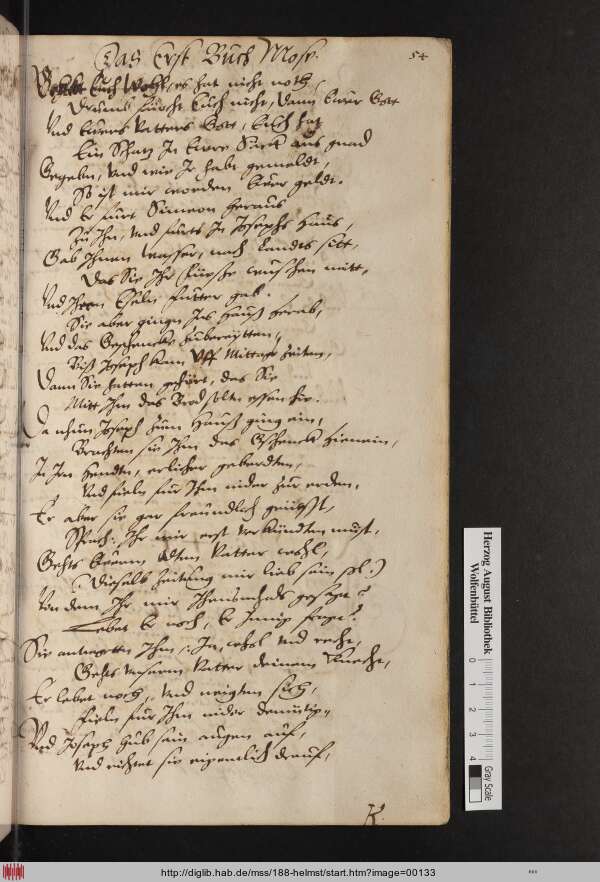 Das Erst Buch Mose.
54
Gehabt Euch Wohl, es hat nicht noth,
Drumb fürcht Euch nicht, dann Euer Gott
Vnd Euers Vatters Gott, Euch hat
Ein Schatz In Eure Säck aus gnad
Gegeben, Vnd wie Ir habt gemeldt,
So ist mir worden Euer geldt.
Vnd Er furt Simeon heraus
Zu Ihn, Vnd furts In Josephs Hauß,
Gab Ihnen wasser, nach Landts sitt,
Das Sie Ihr füeße wuschen mitt,
Vnd Ihren Eseln futter gab.
Sie aber gingen Ins Hauß herab,
Vnd das Geschencke Zubereytten,
Biß Joseph kam Vff Mittags Zeiten,
Dann Sie hatten gehört, das Sie
Mitt Ihm das Brod solten essen hie.
Da nhun Joseph Zum Hauß ging ein,
Brachten sie Ihm das Gschenck hienein,
In Irn Hendten, erlicher geberdten,
Vnd fieln für Ihm nider Zur erden,
Er aber sie gar freundlich grüest,
Sprach: Ihr mir erst verkündten müst,
Gehts Euerm Altem Vatter wohl,
(Dieselb Zeitung mir lieb sein sol:)
Von dem Ihr mir Ihensmhals gesaget?
Lebet Er noch, Er Innig fraget?
Sie antworten Ihm: Ja, wohl Vnd recht,
Gehts Vnserm Vatter deinem Knecht,
Er lebet noch, Vnd neigten sich,
Fieln für Ihm nider demütig,
Vnd Joseph hub sein augen auf,
Vnd richtet sie eigentlich drauf,
K.
Herzog August Bibliothek
Wolfenbüttel
0 1 2 3 4
Gray Scale
http://diglib.hab.de/mss/188-helmst/start.htm?image=00133